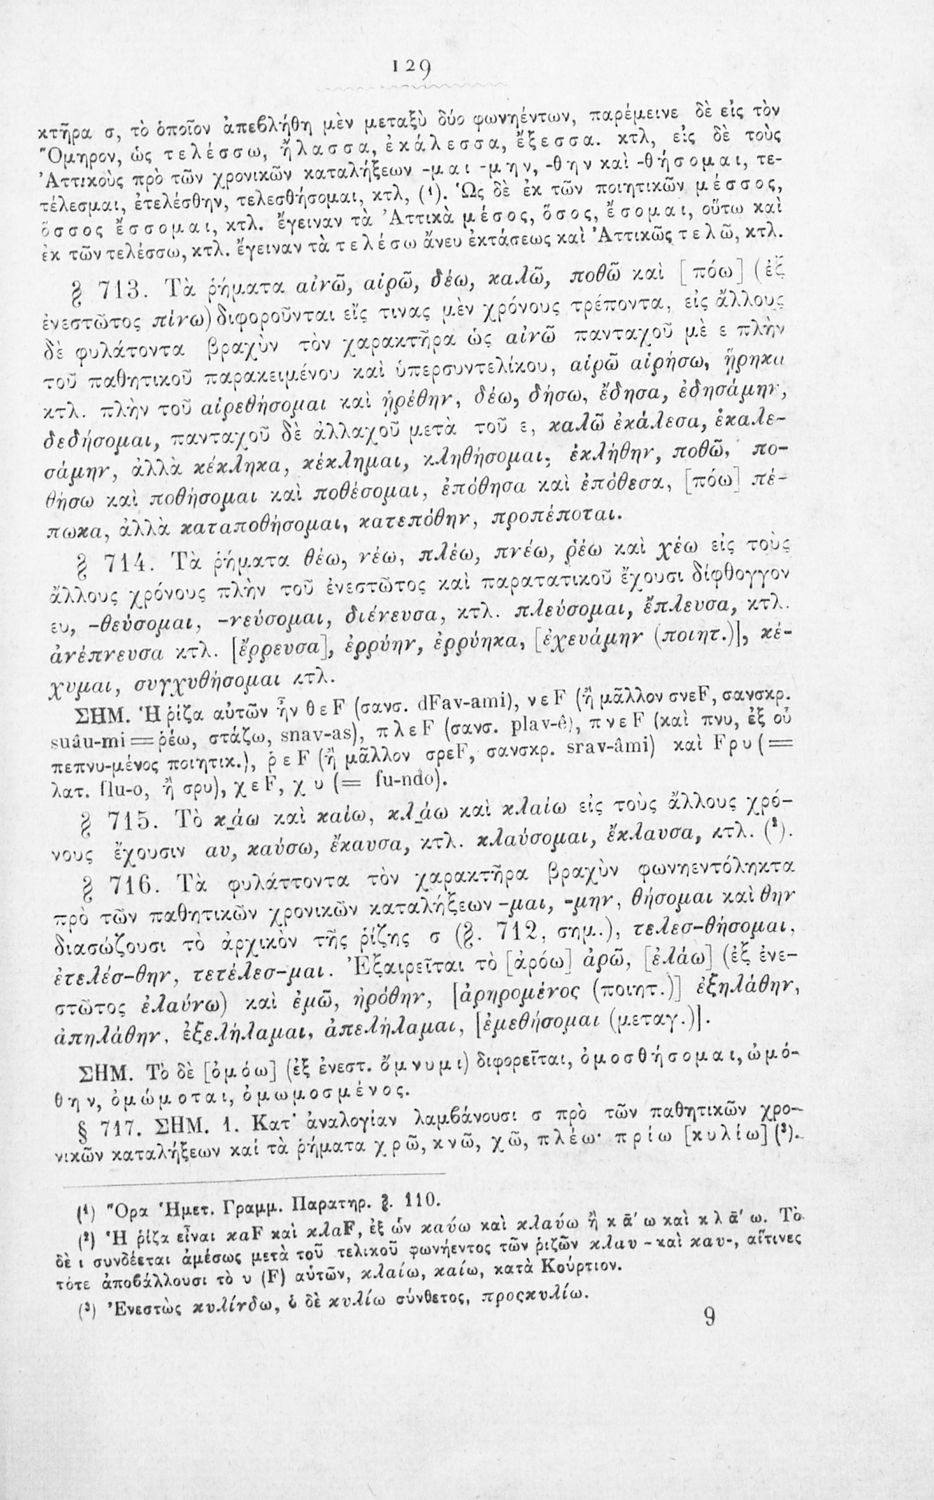 129
κτῆρα σ, τὸ ὁποῖον ἀπεβλήθη μὲν μεταξὺ δύο φωνηέντων, παρέμεινε δὲ εἰς τὸν
Ὅμηρον, ὡς τελέσσω, ἤλασσα, ἐκάλεσσα, ἔξεσσα. κτλ, εἰς δὲ τοὺς
Ἀττικοὺς πρὸ τῶν χρονικῶν καταλήξεων -μαι -μην, -θην καὶ -θήσομαι, τε-
τέλεσμαι, ἐτελέσθην, τελεσθήσομαι, κτλ, (¹). Ὡς δὲ ἐκ τῶν ποιητικῶν μέσσος,
ὅσσος ἔσσομαι, κτλ. ἔγειναν τὰ Ἀττικὰ μέσος, ὅσος, ἔσομαι, οὕτω καὶ
ἐκ τῶν τελέσσω, κτλ. ἔγειναν τὰ τελέσω ἄνευ ἐκτάσεως καὶ Ἀττικῶς τελῶ, κτλ.
§ 713. Τὰ ῥήματα αἰνῶ, αἱρῶ, δέω, καλῶ, ποθῶ καὶ [πόω] (ἐξ
ἐνεστῶτος πίνω) διφοροῦνται εἴς τινας μὲν χρόνους τρέποντα, εἰς ἄλλους
δὲ φυλάτοντα βραχὺν τὸν χαρακτῆρα ὡς αἰνῶ πανταχοῦ μὲ ε πλὴν
τοῦ παθητικοῦ παρακειμένου καὶ ὑπερσυντελίκου, αἱρῶ αἱρήσω, ᾕρηκα
κτλ. πλὴν τοῦ αἱρεθήσομαι καὶ ᾑρέθην, δέω, δήσω, ἔδησα, ἐδησάμην,
δεδήσομαι, πανταχοῦ δὲ ἀλλαχοῦ μετὰ τοῦ ε, καλῶ ἐκάλεσα, ἐκαλε-
σάμην, ἀλλὰ κέκληκα, κέκλημαι, κληθήσομαι, ἐκλήθην, ποθῶ, πο-
θήσω καὶ ποθήσομαι καὶ ποθέσομαι, ἐπόθησα καὶ ἐπόθεσα, [πόω] πέ-
πωκα, ἀλλὰ καταποθήσομαι, κατεπόθην, προπέποται.
§ 714. Τὰ ῥήματα θέω, νέω, πλέω, πνέω, ῥέω καὶ χέω εἰς τοὺς
ἄλλους χρόνους πλὴν τοῦ ἐνεστῶτος καὶ παρατατικοῦ ἔχουσι δίφθογγον
ευ, -θεύσομαι, -νεύσομαι, διένευσα, κτλ. πλεύσομαι, ἔπλευσα, κτλ.
ἀνέπνευσα κτλ. [ἔρρευσα], ἐρρύην, ἐρρύηκα, [ἐχευάμην (ποιητ.)], κέ-
χυμαι, συγχυθήσομαι κτλ.
ΣΗΜ. Ἡ ῥίζα αὐτῶν ἦν θεF (σανσ. dFav-ami), νεF (ἢ μᾶλλον σνεF, σανσκρ.
suâu-mi = ῥέω, στάζω, snav-as), πλεF (σανσ. plav-ê), πνεF (καὶ πνυ, ἐξ οὗ
πεπνυ-μένος ποιητικ.), ῥεF (ἢ μᾶλλον σρεF, σανσκρ. srav-âmi) καὶ Fρυ (=
λατ. flu-o, ἢ σρυ), χεF, χυ (= fu-ndo).
§ 715. Τὸ κάω καὶ καίω, κλάω καὶ κλαίω εἰς τοὺς ἄλλους χρό-
νους ἔχουσιν αυ, καύσω, ἔκαυσα, κτλ. κλαύσομαι, ἔκλαυσα, κτλ. (²).
§ 716. Τὰ φυλάττοντα τὸν χαρακτῆρα βραχὺν φωνηεντόληκτα
πρὸ τῶν παθητικῶν χρονικῶν καταλήξεων -μαι, -μην, θήσομαι καὶ θην
διασώζουσι τὸ ἀρχικὸν τῆς ῥίζης σ (§. 712, σημ.), τελεσ-θήσομαι,
ἐτελέσ-θην, τετέλεσ-μαι. Ἐξαιρεῖται τὸ [ἀρόω] ἀρῶ, [ἐλάω] (ἐξ ἐνε-
στῶτος ἐλαύνω) καὶ ἐμῶ, ἠρόθην, [ἀρηρομένος (ποιητ.)] ἐξηλάθην,
ἀπηλάθην, ἐξελήλαμαι, ἀπελήλαμαι, [ἐμεθήσομαι (μεταγ.)].
ΣΗΜ. Τὸ δὲ [ὀμόω] (ἐξ ἐνεστ. ὄμνυμι) διφορεῖται, ὀμοσθήσομαι, ὠμό-
θην, ὀμώμοται, ὀμωμοσμένος.
§ 717. ΣΗΜ. 1. Κατ' ἀναλογίαν λαμβάνουσι σ πρὸ τῶν παθητικῶν χρο-
νικῶν καταλήξεων καὶ τὰ ῥήματα χρῶ, κνῶ, χῶ, πλέω· πρίω [κυλίω] (³).
(¹) Ὅρα Ἡμετ. Γραμμ. Παρατηρ. §. 110.
(²) Ἡ ῥίζα εἶναι καF καὶ κλαF, ἐξ ὧν καύω καὶ κλαύω ἢ κᾱ́ω καὶ κλᾱ́ω. Τὸ
δὲ ι συνδέεται ἀμέσως μετὰ τοῦ τελικοῦ φωνήεντος τῶν ῥιζῶν κλαυ - καὶ καυ-, αἵτινες
τότε ἀποβάλλουσι τὸ υ (F) αὐτῶν, κλαίω, καίω, κατὰ Κούρτιον.
(³) Ἐνεστὼς κυλίνδω, ὁ δὲ κυλίω σύνθετος, προςκυλίω.
9